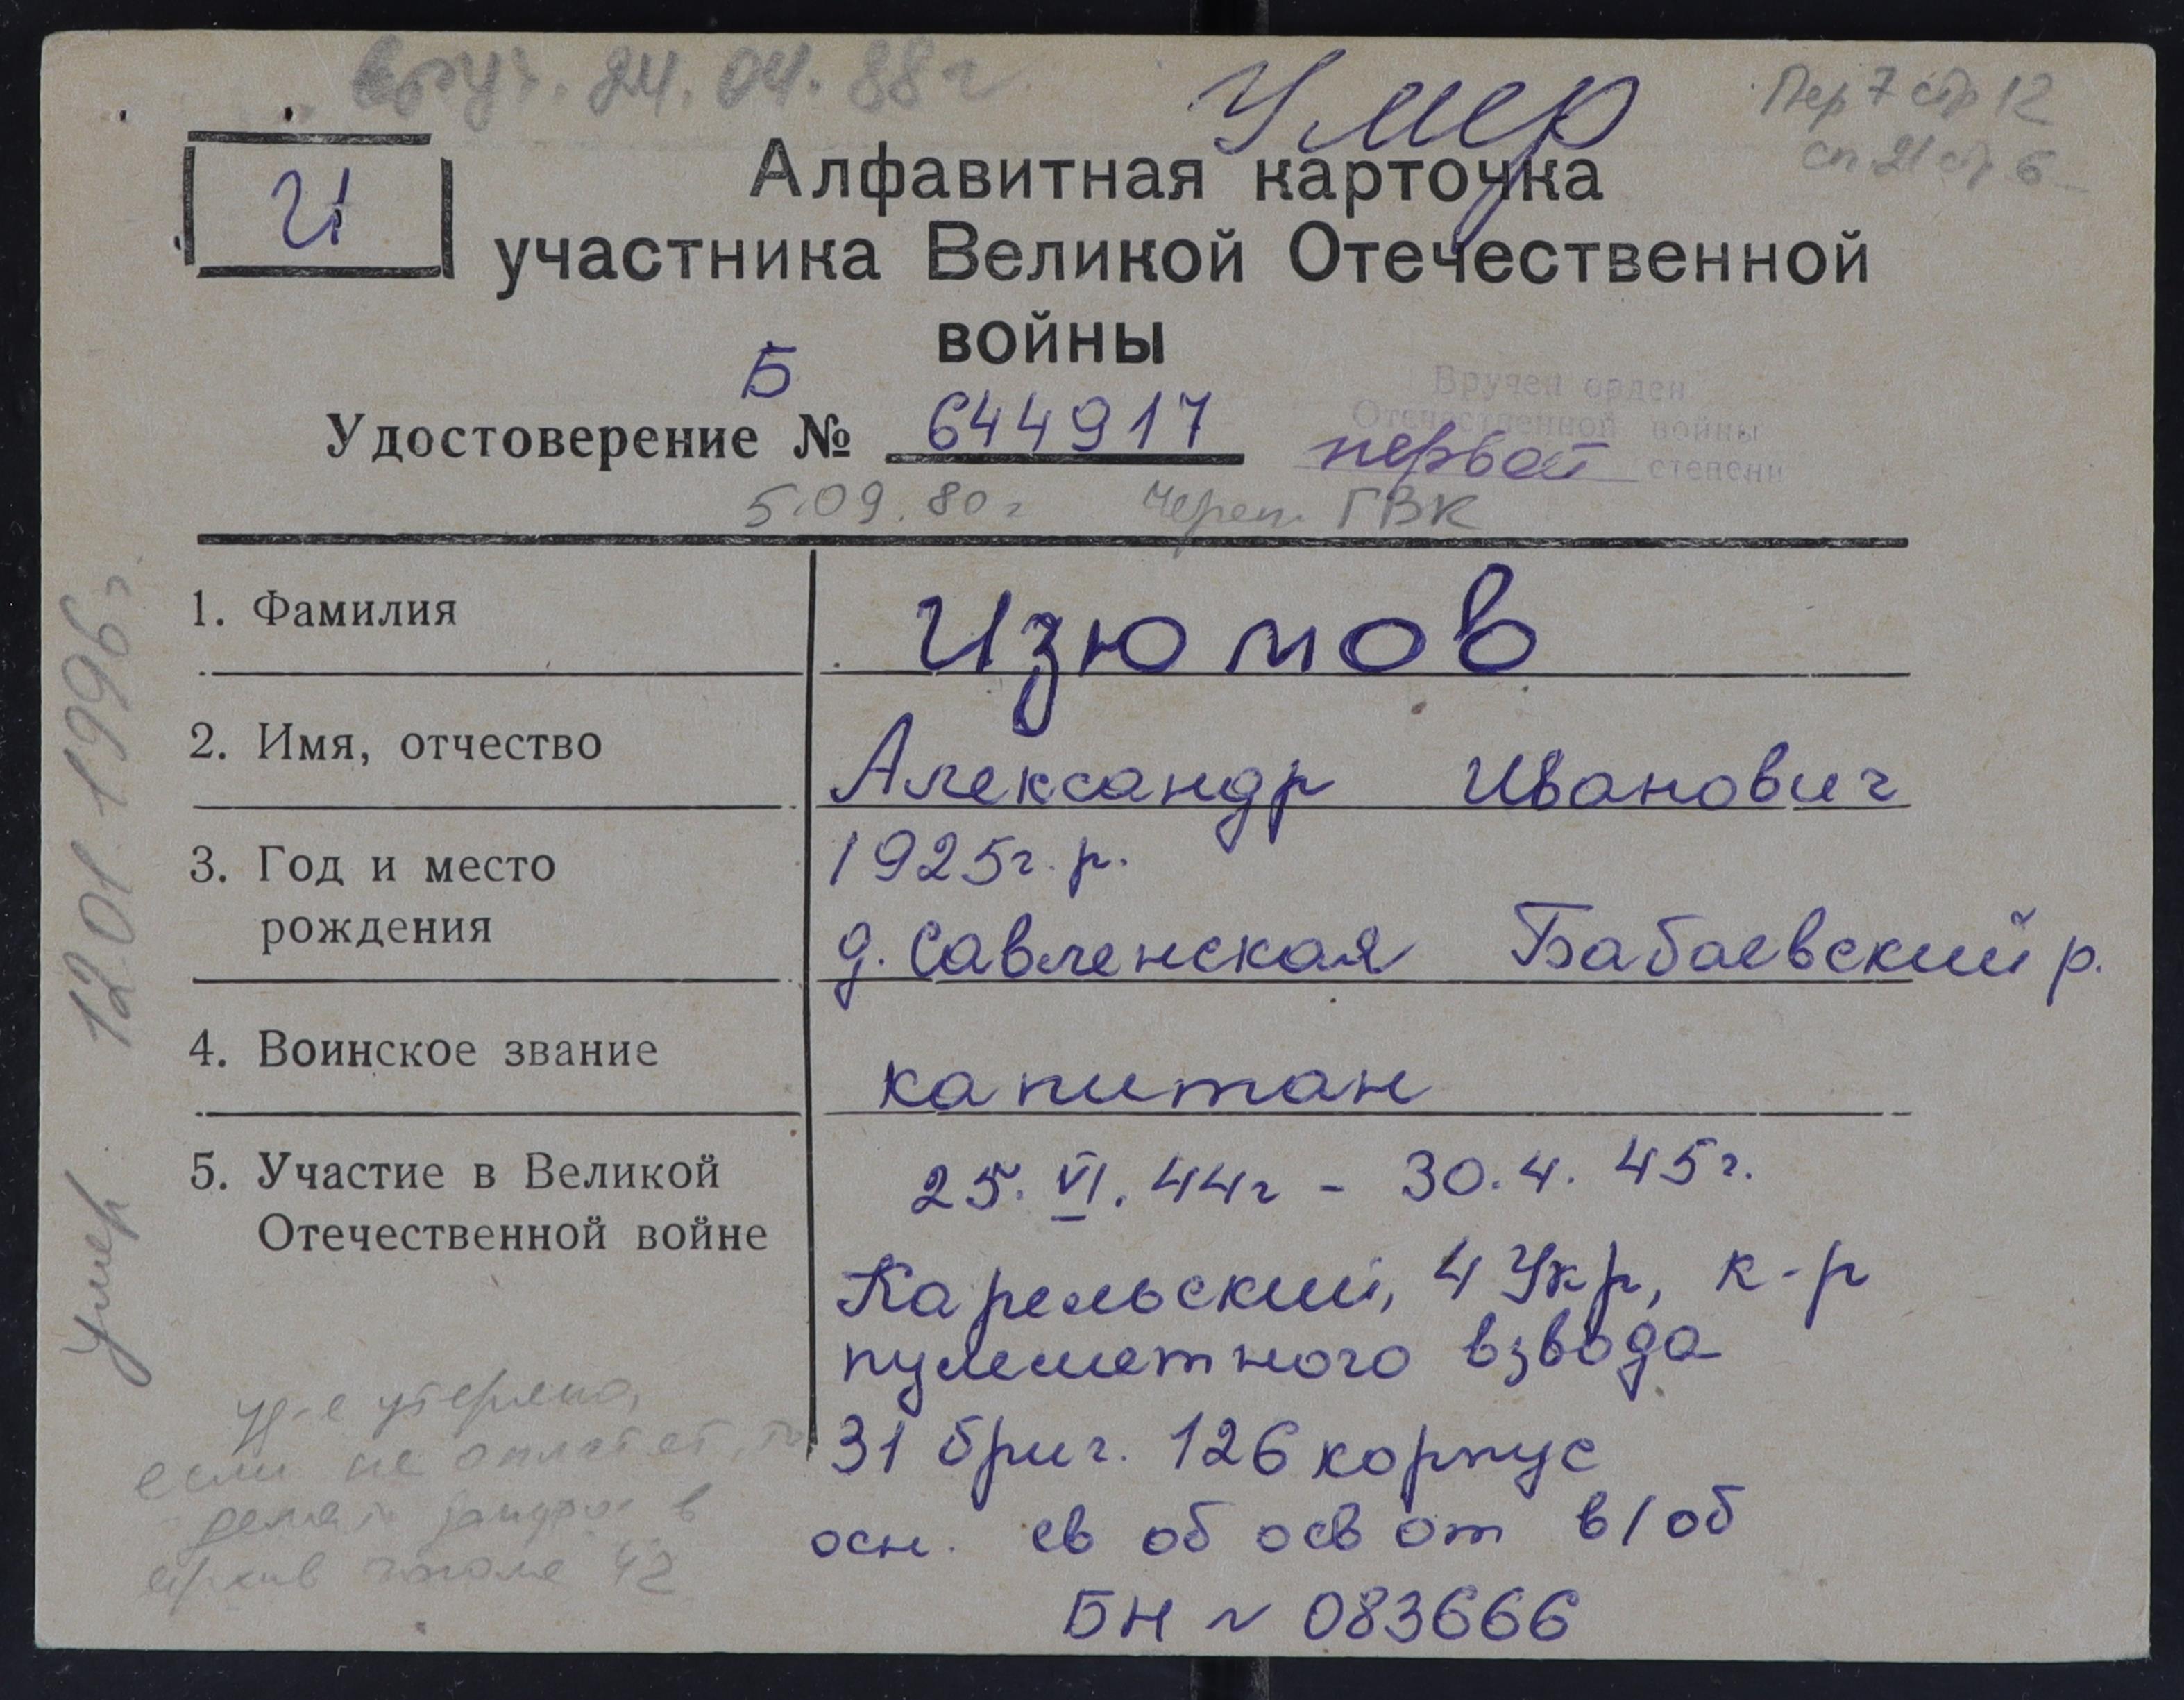 вруч. 24.04.88 г.
Умер
Пер 7 стр 12
сп 21 стр 6
И
Алфавитная карточка
участника Великой Отечественной
войны
Б
Удостоверение № 644917
Вручен орден
Отечественной войны
первой степени
5.09.80 г Череп. ГВК
1. Фамилия
Изюмов
2. Имя, отчество
Александр Иванович
3. Год и место
рождения
1925г.р.
д. Савленская Бабаевский р.
4. Воинское звание
капитан
5. Участие в Великой
Отечественной войне
25.VI.44г - 30.4.45г.
Карельский, 4 Укр, к-р
пулеметного взвода
31 бриг. 126 корпус
осн. св об осв от в/об
БН № 083666
Умер 12.01.1996 г.
уд-е утеряно,
если не оплатят, то
в
архив 42